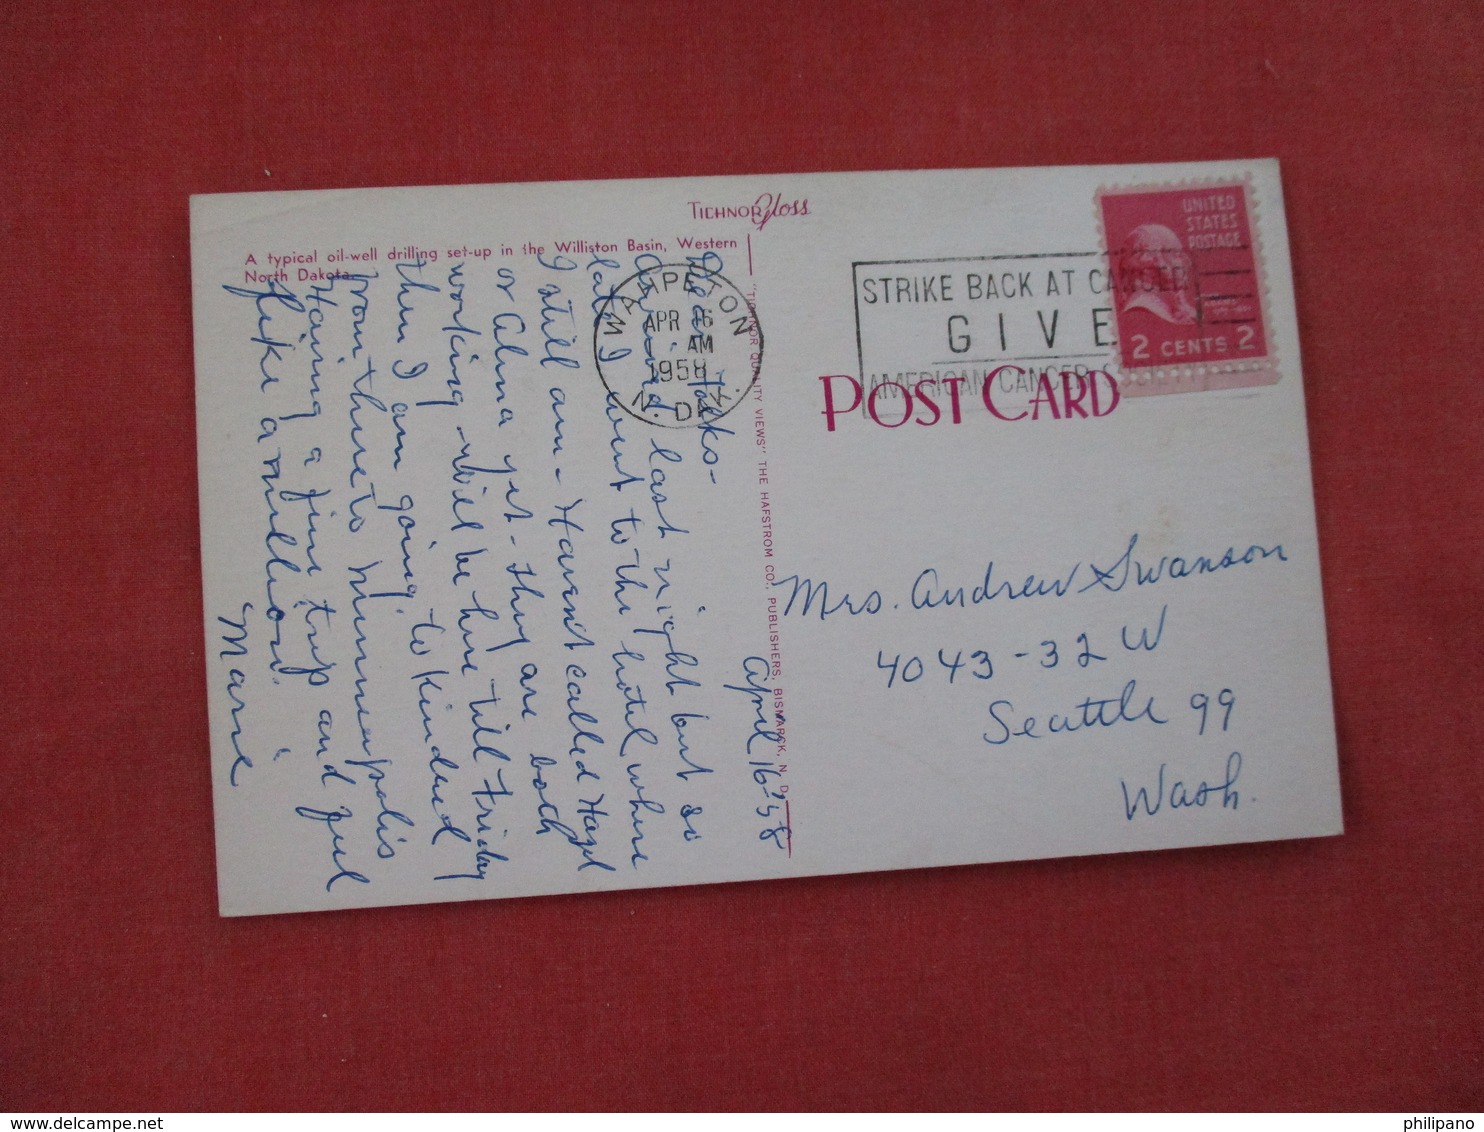 TICHNOR Gloss
A typical oil-well drilling set-up in the Williston Basin, Western
North Dakota.
WAHPETON
APR 16
AM
1958
N. DAK.
STRIKE BACK AT CANCER
GIVE
AMERICAN CANCER SOCIETY
UNITED
STATES
POSTAGE
2 CENTS 2
POST CARD
"TICHNOR QUALITY VIEWS" THE HAFSTROM CO., PUBLISHERS, BISMARCK, N. D.
April 16-'58
Dear Folks-
Arrived last night but so
late I went to the hotel, where
I still am - Haven't called Hazel
or Alma yet - they are both
working - Will be here till Friday
then I am going to Kindred
from there to Minneapolis
Having a fine trip and feel
like a million.
Marie
Mrs. Andrew Swanson
4043-32 W
Seattle 99
Wash.
www.delcampe.net
philipano